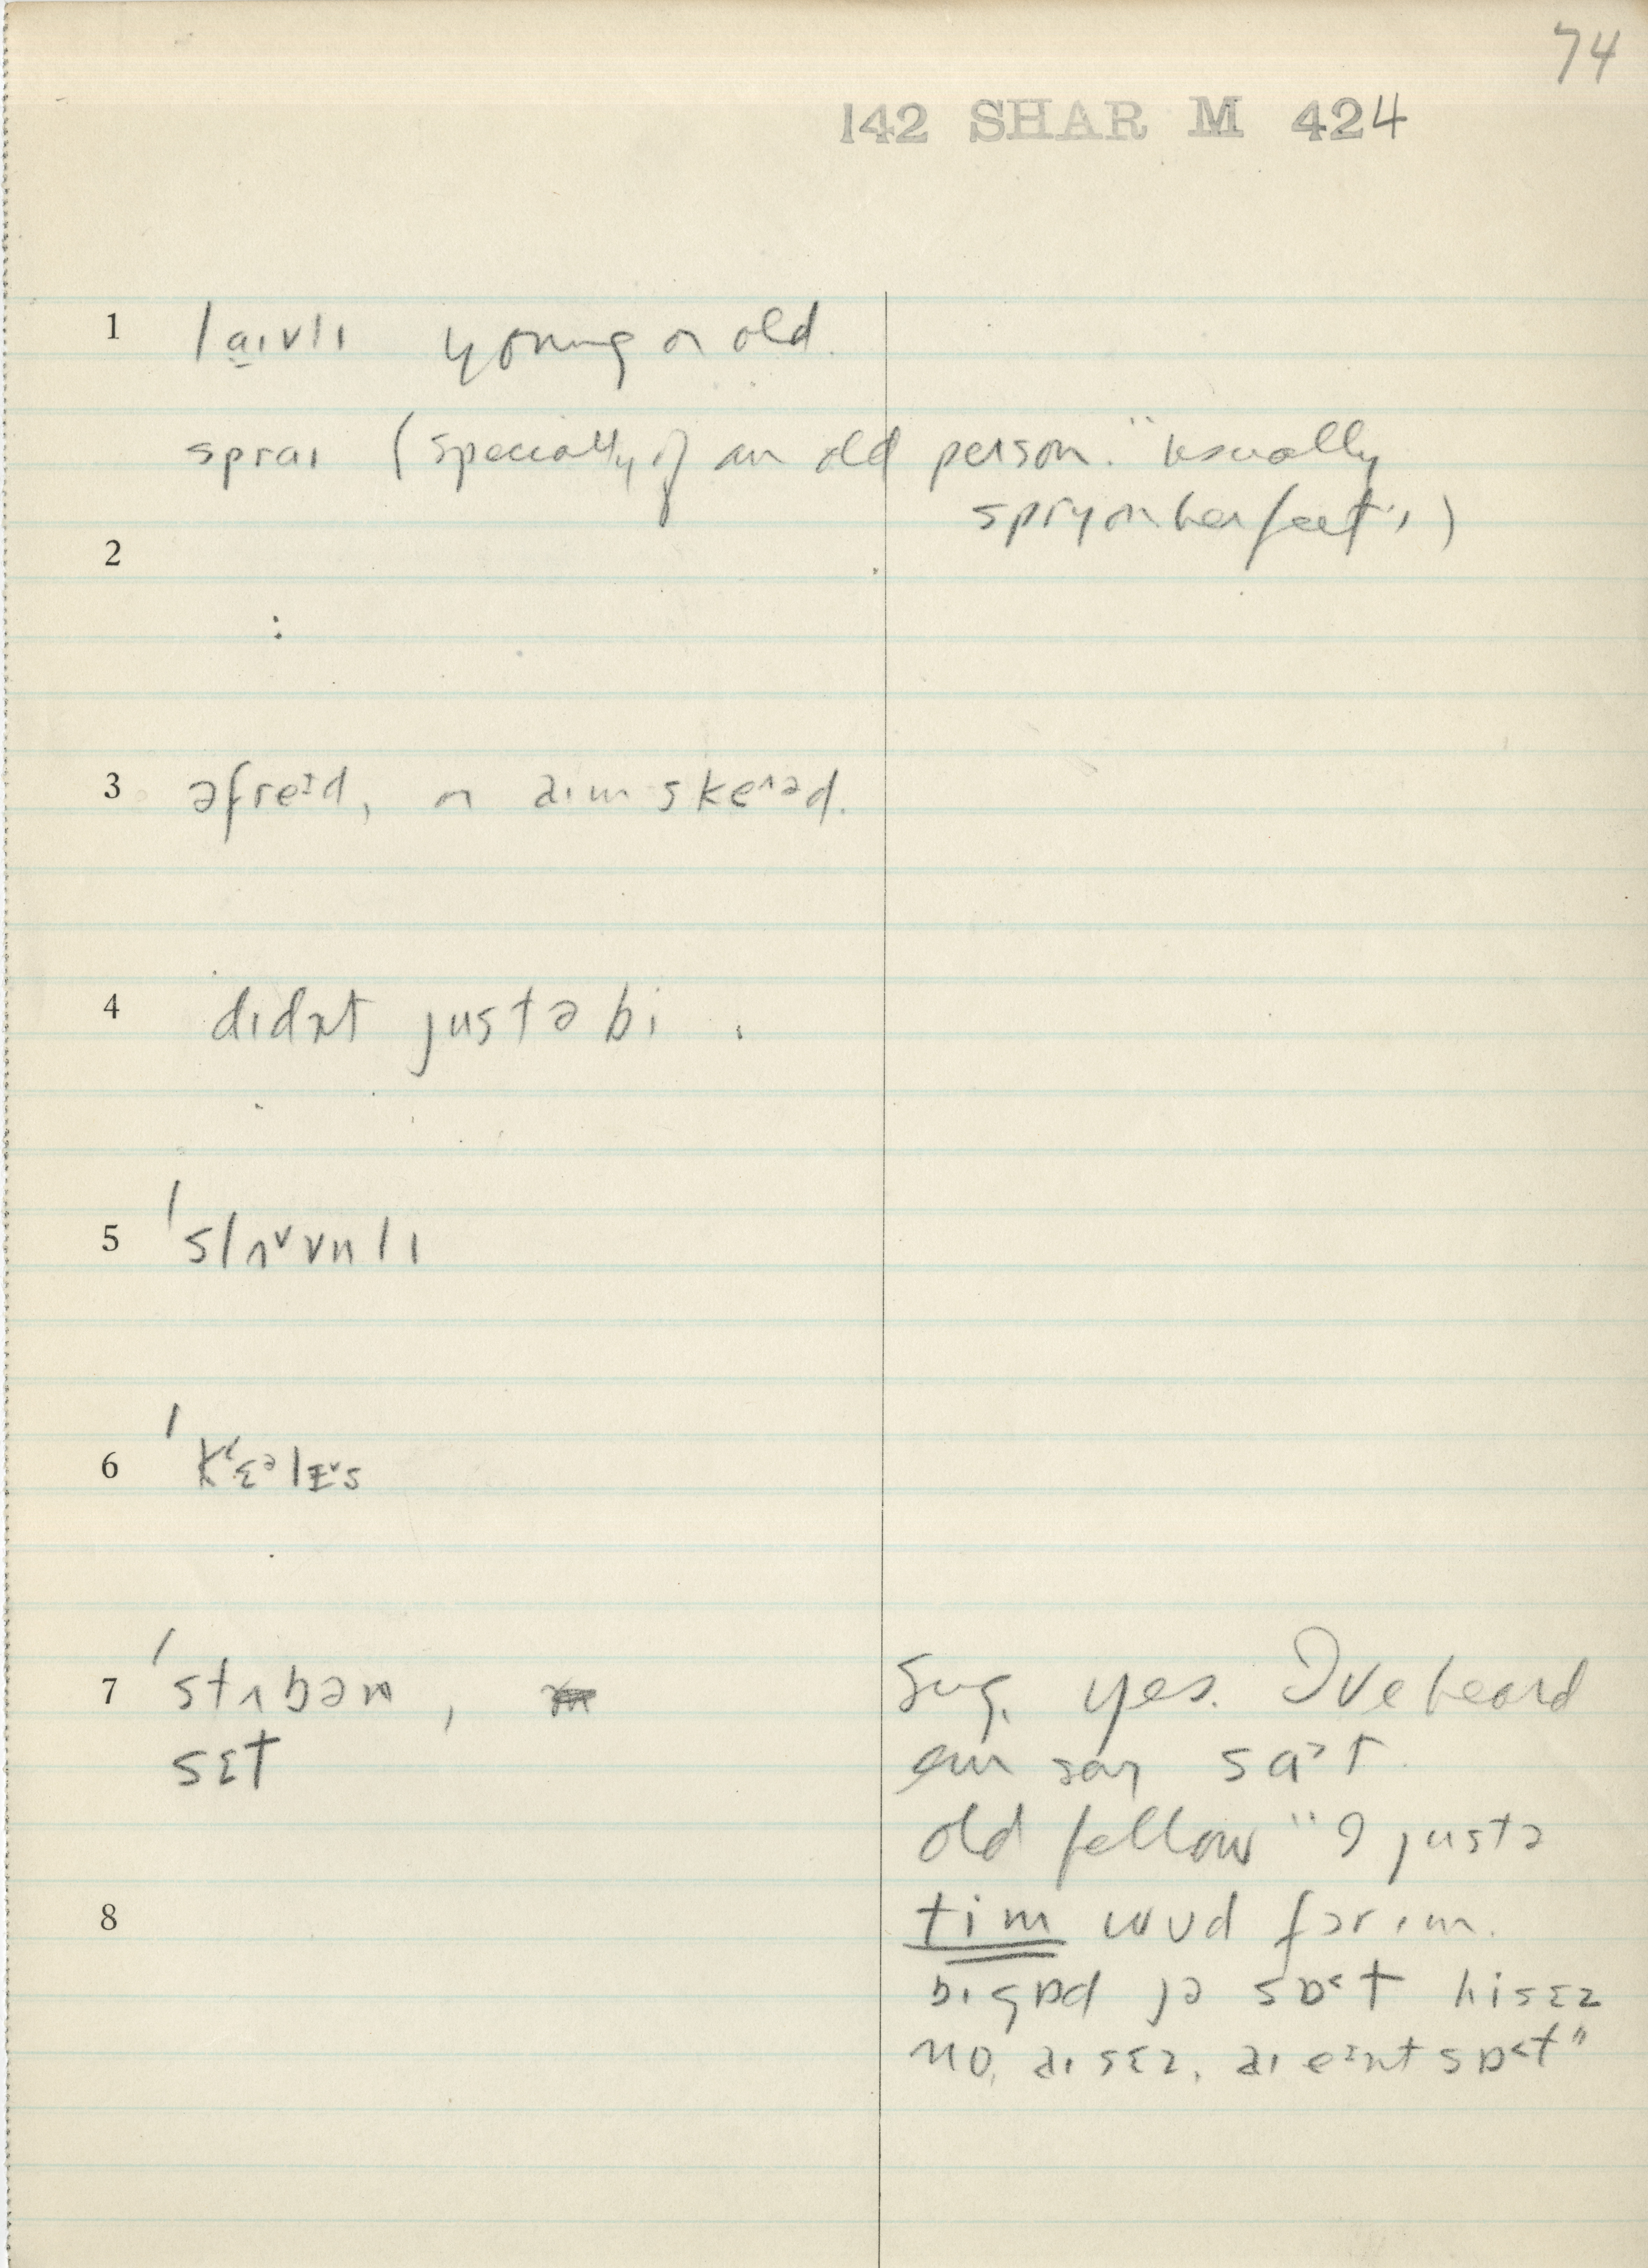 74
142 SHAR M 424
1 laɪvlɪ young or old.
spraɪ (specially of an old person. "usually
spry on her feet")
2
3 əfreᶦd, or aɪm skeᵊəd.
4 dɪdn̩t justə bi.
5 ˈslʌᵛvn̩lɪ
6 ˈkʻɛᵊlɛ̵ᵛs
7 ˈstʌbən,
sɛt
Sug. yes. I've heard
em say saᵊt.
old fellow "I justə
tim wud fər ɪm.
bɪgɒd jə sɒ˂t hi sɛz
no, aɪ sɛz, aɪ eᶦnt sɒ˂t"
8